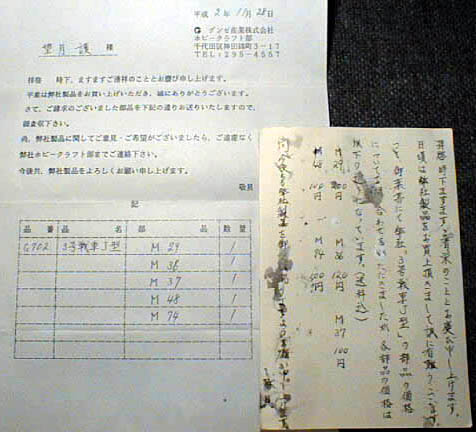 平成 2年 11月 28日
望月 護 様
G グンゼ産業株式会社
ホビークラフト部
千代田区神田錦町3-17
TEL:295-4557
拝啓 時下、ますますご清祥のこととお慶び申し上げます。
平素は弊社製品をお買い上げいただき、誠にありがとうございます。
さて、ご請求のございました部品を下記の通りお送りいたしますので、
御査収下さい。
尚、弊社製品に関してご意見・ご希望がございましたら、ご遠慮なく
弊社ホビークラフト部までご連絡下さい。
今後共、弊社製品をよろしくお願い申し上げます。
敬具
記
品番 品名 部品 数量
G702 3号戦車J型 M 29 1
M 36 1
M 37 1
M 48 1
M 74 1
拝啓 時下ますますご清栄のこととお慶び申し上げます。
日頃は弊社製品をお買上頂きまして誠に有難うございます。
弊社「3号戦車J型」の部品の価格
についてお問合わせをいただきましたが 各部品の価格は
以下の通りとなっています。(送料込)
M 29
M 36 120円
M 37 100円
M 48
M 74